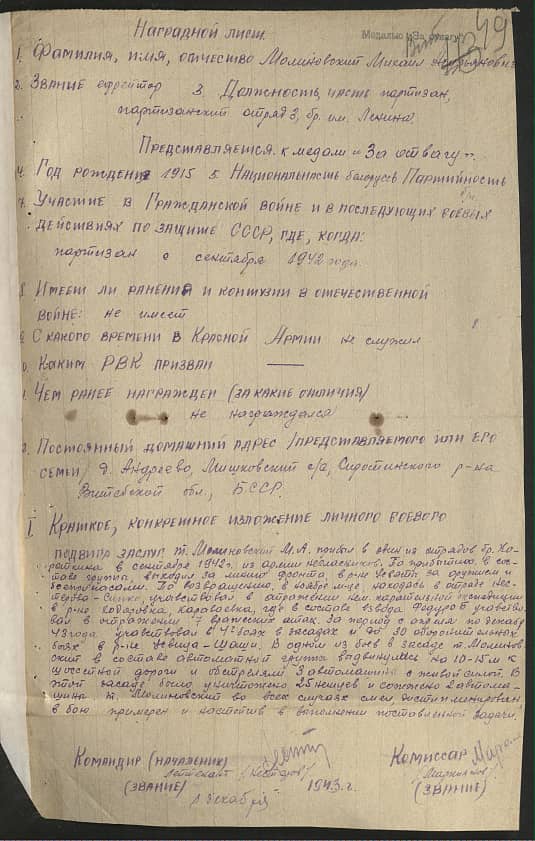 Медалью "За отвагу"
49
Наградной лист
1. Фамилия, имя, отчество Молиновский Михаил
2. Звание ефрейтор 3. Должность, часть партизан,
партизанский отряд 3, бр. им. Ленина
Представляется к медали "За отвагу".
4. Год рождения 1915 5. Национальность белорусс Партийность
Участие в Гражданской войне и в последующих боевых
действиях по защите СССР, где, когда:
партизан с сентября 1942 года.
8. Имеет ли ранения и контузии в отечественной
войне: не имеет
С какого времени в Красной Армии не служил
Каким РВК призван —
Чем ранее награжден (за какие отличия)
не награждался
Постоянный домашний адрес /представляемого или его
семьи/ д. Андреево, Мишковский с/с, р-на
Витебской обл., БССР.
I Краткое, конкретное изложение личного боевого
подвига заслуг. т. Молиновский М.А. прибыл в один из отрядов бр. Ко-
роткина в сентябре 1942 г. из армии По прибытию, в сос-
таве группы, выходил за линию фронта, в р-не за оружием и
боеприпасами. По возвращению, в ноябре м-це, находясь в отряде Нес-
терова участвовал в отражении нем. карательной экспедиции
в р-не Караваевка, где в составе взвода участво-
вал в отражении 7 вражеских атак. За период с апреля по декабр
43 года участвовал в 4х боях в засадах и до 30 оборонительных
боях в р-не Уевица - Шаши. В одном из боев в засаде т. Молинов-
ский в составе автоматной группы выдвинулись на 10-15 м к
шоссейной дороги и обстреляли 3 автомашины с живой силой. В
этой засаде было уничтожено 25 немцев и сожжено 2 автома-
шины т. Молиновский во всех случаях смел дисциплинирован
в бою примерен и настойчив в выполнении поставленной задачи.
Командир (начальник) Комиссар
лейтенант /Нестеров/ /Маркинов/
(звание) 1 декабря 1943 г. (звание)